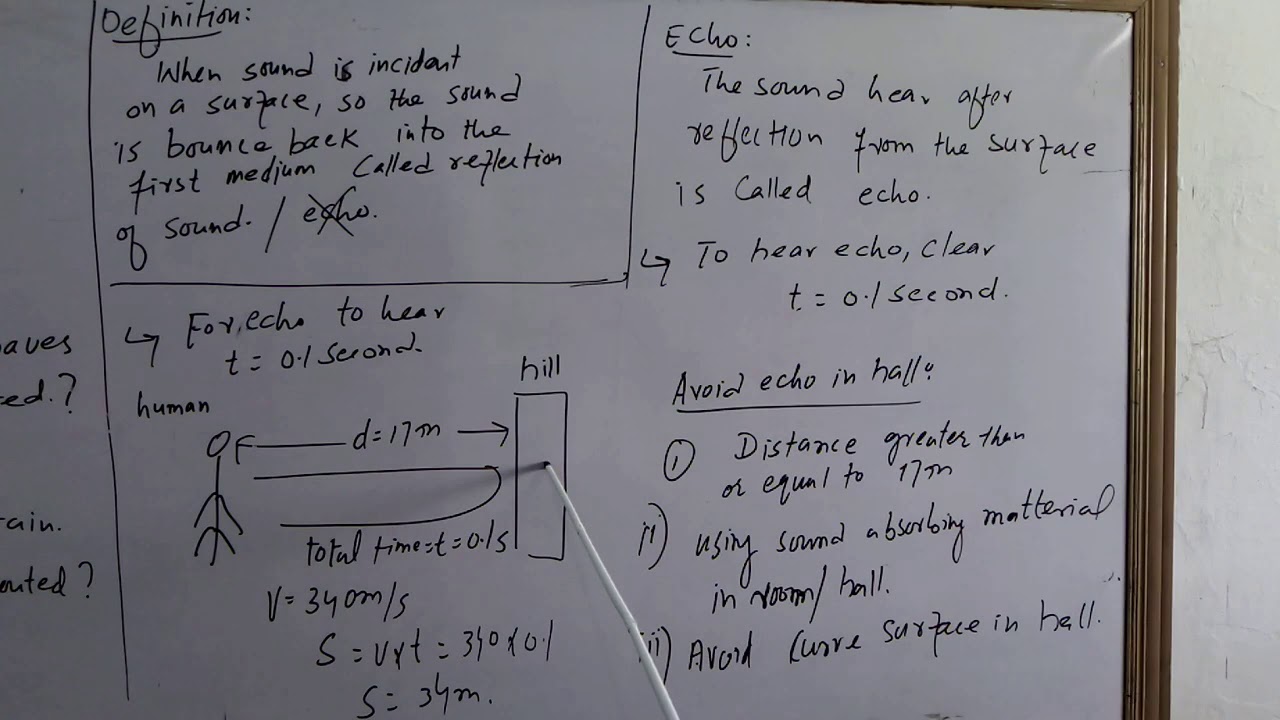 Definition:
When sound is incident
on a surface, so the sound
is bounce back into the
first medium Called reflection
of sound. / echo.
Echo:
The sound hear after
reflection from the surface
is Called echo.
↳ To hear echo, clear
t = 0.1 second.
↳ For, echo to hear
t = 0.1 second.
human
hill
d = 17m
total time = t = 0.1s
V = 340m/s
S = v x t = 340 x 0.1
S = 34m.
Avoid echo in hall:
① Distance greater than
or equal to 17m
ii) using sound absorbing matterial
in room / hall.
iii) Avoid Curve surface in hall.
ed.?
ain.
?